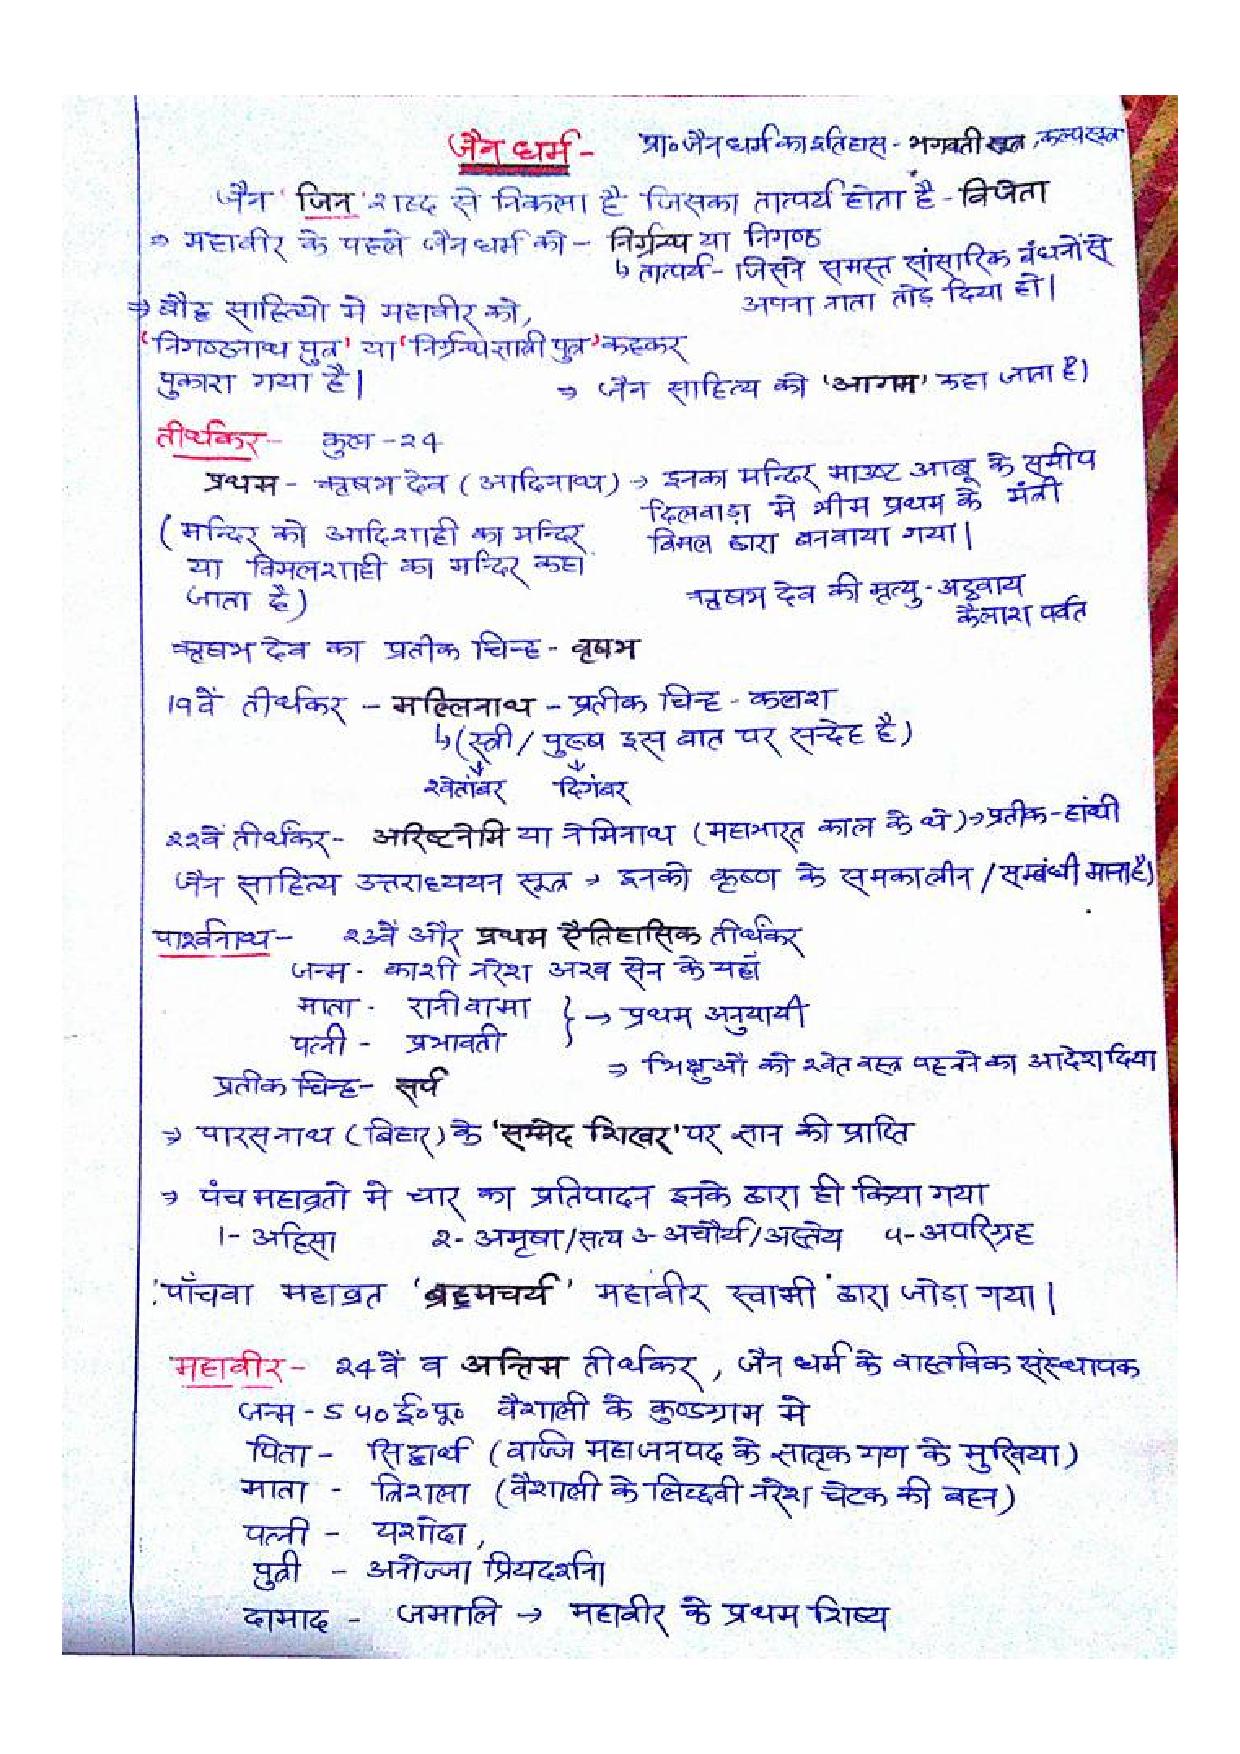 जैन धर्म - प्रा० जैन धर्म का इतिहास - भगवती सूत्र, कल्पसूत्र
जैन 'जिन' शब्द से निकला है जिसका तात्पर्य होता है - विजेता
⇒ महावीर के पहले जैन धर्म को - निर्ग्रन्थ या निगण्ठ
↳ तात्पर्य - जिसने समस्त सांसारिक बंधनों से
अपना नाता तोड़ दिया हो।
⇒ बौद्ध साहित्यो मे महावीर को,
'निगण्ठनाथ पुत्र' या 'निर्ग्रन्थ पुत्र' कहकर
पुकारा गया है।
⇒ जैन साहित्य को 'आगम' कहा जाता है)
तीर्थकर - कुल - २4
प्रथम - ऋषभ देव (आदिनाथ) → इनका मन्दिर माउण्ट आबू के समीप
दिलवाड़ा मे भीम प्रथम के मंत्री
विमल द्वारा बनवाया गया।
(मन्दिर को आदिशाही का मन्दिर
या विमलशाही का मन्दिर कहा
जाता है)
ऋषभ देव की मृत्यु - अट्ठवाय
कैलाश पर्वत
ऋषभ देव का प्रतीक चिन्ह - वृषभ
19वें तीर्थकर - मल्लिनाथ - प्रतीक चिन्ह - कलश
↳ (स्त्री / पुरूष इस बात पर सन्देह है)
श्वेतांबर दिगंबर
२२वें तीर्थकर - अरिष्टनेमि या नेमिनाथ (महाभारत काल के थे) → प्रतीक - हांथी
जैन साहित्य उत्तराध्ययन सूत्र → इनको कृष्ण के समकालीन / सम्बंधी माना है)
पार्श्वनाथ - २३वें और प्रथम ऐतिहासिक तीर्थकर
जन्म - काशी नरेश अश्व सेन के यहाँ
माता - रानी वामा
पत्नी - प्रभावती } → प्रथम अनुयायी
⇒ भिक्षुओ को श्वेत वस्त्र पहनने का आदेश दिया
प्रतीक चिन्ह - सर्प
⇒ पारसनाथ (बिहार) के 'सम्मेद शिखर' पर ज्ञान की प्राप्ति
⇒ पंच महाव्रतो मे चार का प्रतिपादन इनके द्वारा ही किया गया
1- अहिंसा २- अमृषा/सत्य ३- अचौर्य/अस्तेय ५- अपरिग्रह
पाँचवा महाव्रत 'ब्रह्मचर्य' महावीर स्वामी द्वारा जोड़ा गया।
महावीर - २4वें व अन्तिम तीर्थकर, जैन धर्म के वास्तविक संस्थापक
जन्म - 5४० ई०पू० वैशाली के कुण्डग्राम मे
पिता - सिद्धार्थ (वाज्जि महाजनपद के ज्ञातृक गण के मुखिया)
माता - त्रिशला (वैशाली के लिच्छवी नरेश चेटक की बहन)
पत्नी - यशोदा,
पुत्री - अनोज्जा प्रियदर्शना
दामाद - जमालि → महावीर के प्रथम शिष्य